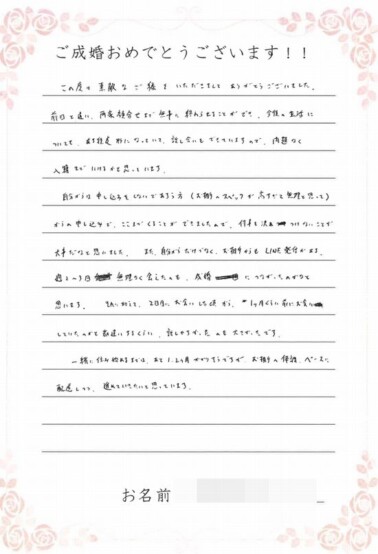 ご成婚おめでとうございます!!
この度は素敵なご縁をいただきまして ありがとうございました。
前日と違い、両家顔合せまで無事に終わらせることができ、今後の生活に
ついても、ほぼ想定形になっていて、話し合いもできていますので、問題なく
入籍までいけるかと思っています。
自分からは申し込みをしないであろう方(お相手のスペックが高すぎと無理と思って)
からの申し込みで、ここまでくることができましたので、仕事も決めつけないことが
大事だなと思いました。また、自分からだけでなく、お相手からもLINE発信がある、
週2〜3日 無理なく会えたのも、成婚 につながったのかなと
思います。 加えて、2日目にお会いした時から、1ヶ月ぐらい前にお会い
していたのかと勘違いするぐらい、話しやすかったのも大きかったです。
一緒に住み始めるまでは、あと1、2ヶ月かかりそうですが、お相手の体調、ペースに
配慮しつつ、進めていきたいと思っています。
お名前